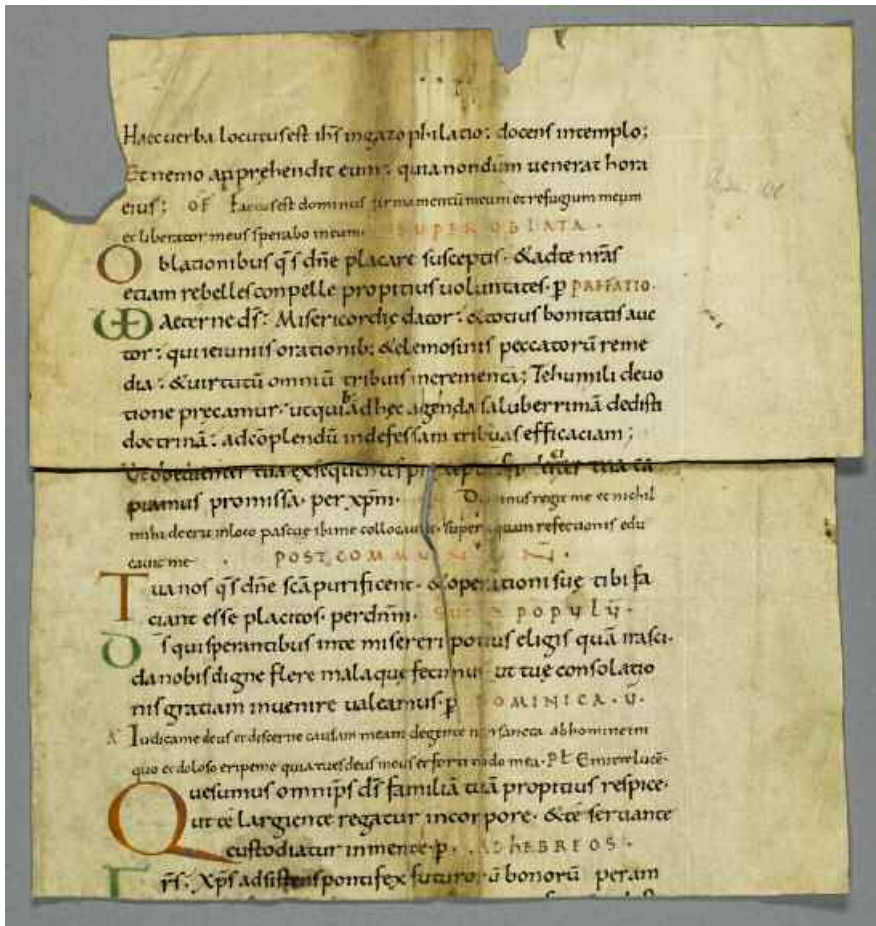 Haec uerba locutus est ihs̄ in gazophilatio; docens in templo;
Et nemo appręhendit eum; quia nondum uenerat hora
eius; OF Factus est dominus firmamentū meum et refugium meum
et liberator meus sperabo in eum. SUPER OBLATA.
Oblationibus q̄s dn̄e placare susceptis. & ad te nr̄as
etiam rebelles conpelle propitius uoluntates. p̄ PREFATIO.
VD Aeterne ds̄. Misericordię dator. & totius bonitatis auc
tor. qui ieiuniis orationib; & elemosinis peccatorū reme
dia. & uirtutū omniū tribuis incrementa; Te humili deuo
tione pręcamur. ut qui ad hęc agenda saluberrimā dedisti
doctrinā. ad cōplendū indefessam tribuas efficaciam;
Ut obedienter tua exsequentes
piamus promissa. per xp̄m. Dominus regit me et nichil
mihi deerit in loco pascuę ibi me collocauit. super aquam refectionis edu
cauit me. POST COMMUN
Tua nos q̄s dn̄e sc̄a purificent. & operationi suę tibi fa
ciant esse placitos. per dn̄m. SUPER POPULŪ.
Ds̄ qui sperantibus in te misereri potius eligis quā irasci.
da nobis digne flere mala quę fecimus ut tuę consolatio
nis gratiam inuenire ualeamus. p̄ DOMINICA. V.
A Iudica me deus et discerne causam meam de gente non sancta ab homine ini
quo et doloso eripe me quia tu es deus meus et fortitudo mea. Ps̄ Emitte lucē.
Quesumus omnip̄s ds̄ familiā tuā propitius respice.
ut te largiente regatur in corpore. & te seruante
custodiatur in mente. p̄. AD hEBREOS.
Fr̄s. Xp̄s adsistens pontifex futurorū bonorū per am